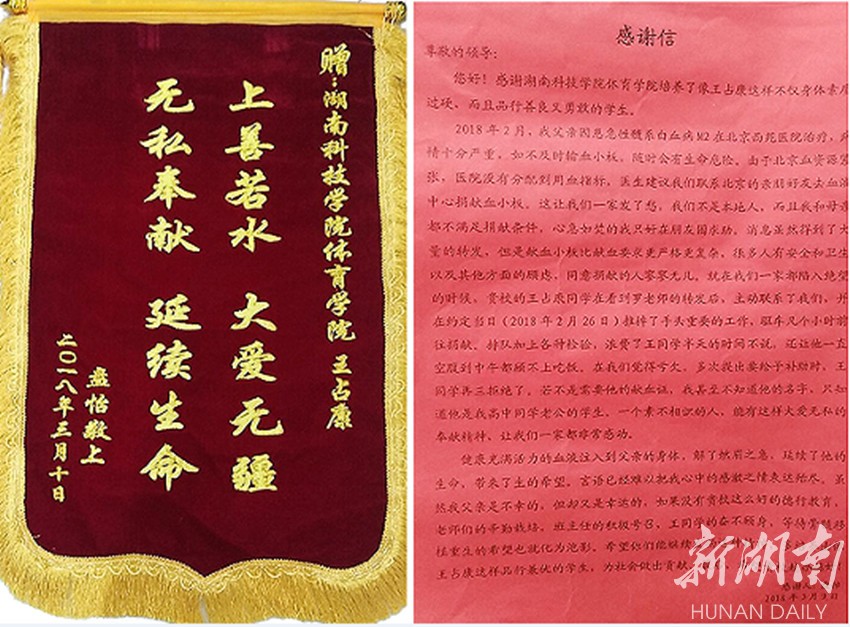 赠：湖南科技学院体育学院 王占康
上善若水 大爱无疆
无私奉献 延续生命
孟怡敬上
二〇一八年三月十日
感谢信
尊敬的领导：
您好！感谢湖南科技学院体育学院培养了像王占康这样不仅身体素质
过硬，而且品行善良又勇敢的学生。
2018年2月，我父亲因患急性髓系白血病M2在北京西苑医院治疗，病
情十分严重，如不及时输血小板，随时会有生命危险。由于北京血资源紧
张，医院没有分配到用血指标，医生建议我们联系北京的亲朋好友去血液
中心捐献血小板。这让我们一家发了愁，我们不是本地人，而且我和母亲
都不满足捐献条件，心急如焚的我只好在朋友圈求助。消息虽然得到了大
量的转发，但是献血小板比献血要求更严格更复杂，很多人有安全和卫生
以及其他方面的顾虑，同意捐献的人寥寥无几。就在我们一家都陷入绝望
的时候，贵校的王占康同学在看到罗老师的转发后，主动联系了我们，并
在约定当日（2018年2月26日）推掉了手头重要的工作，驱车几个小时前
往捐献。排队加上各种检验，浪费了王同学半天的时间不说，还让他一直
空腹到中午都顾不上吃饭。在我们觉得亏欠，多次提出要给予补助时，王
同学再三拒绝了。若不是需要他的献血证，我甚至不知道他的名字，只知
道他是我高中同学老公的学生，一个素不相识的人，能有这样大爱无私的
奉献精神，让我们一家都非常感动。
健康充满活力的血液注入到父亲的身体，解了燃眉之急，延续了他的
生命，带来了生的希望。言语已经难以把我心中的感激之情表达殆尽。虽
然我父亲是不幸的，但却又是幸运的，如果没有贵校这么好的德行教育，
老师们的辛勤栽培，班主任的积极号召，王同学的奋不顾身，等待骨髓移
植重生的希望也就化为泡影。希望你们能继续
王占康这样品行兼优的学生，为社会做出贡献
感谢人
2018年3月9日
新湖南
HUNAN DAILY